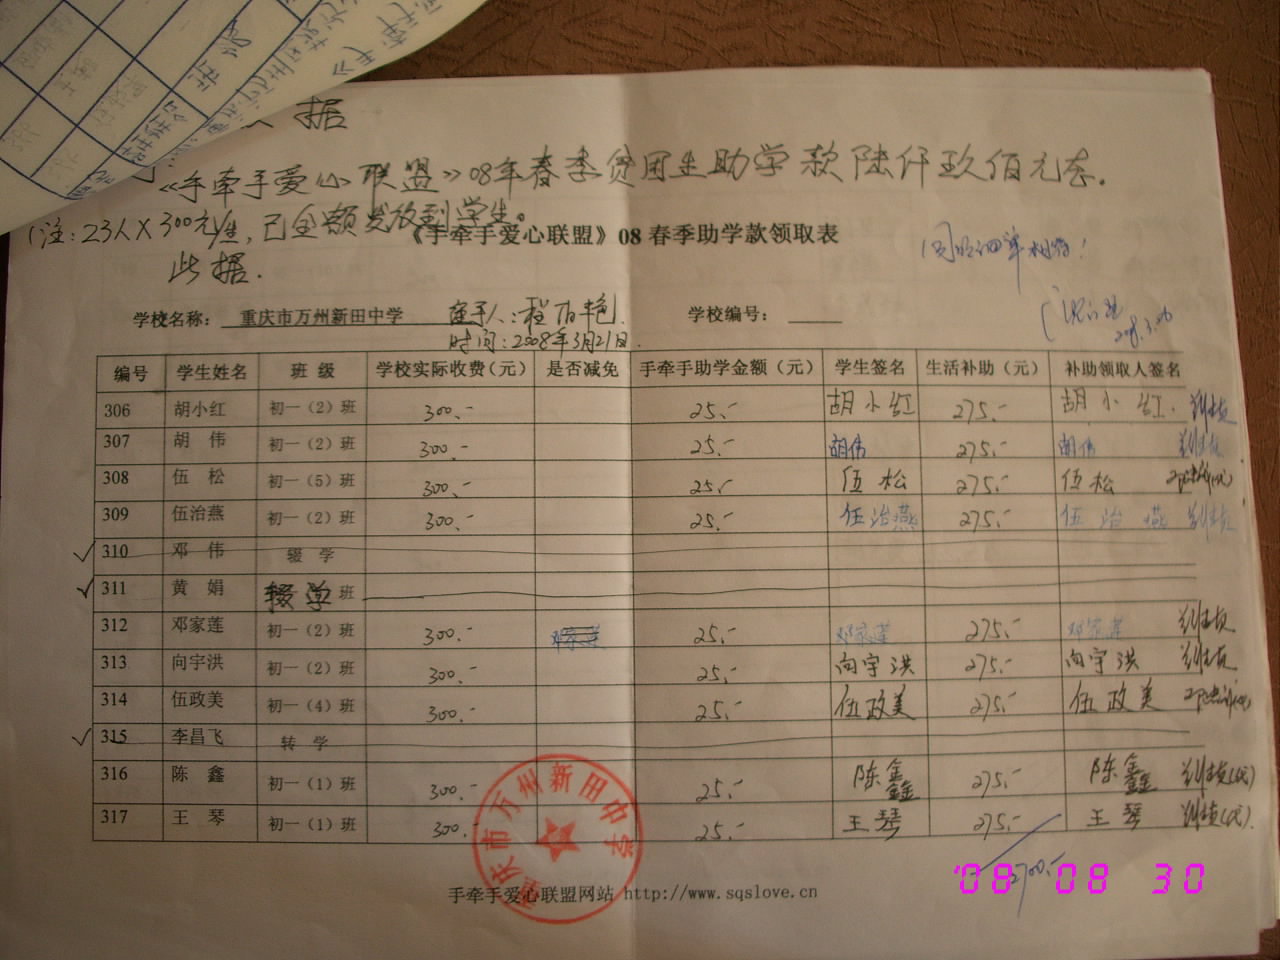 据
《手牵手爱心联盟》08年春季贷困生助学款陆仟玖佰元查.
(注:23人X300元/生,已全额发放到学生。
《手牵手爱心联盟》08 春季助学款领取表
此据.
学校名称: 重庆市万州新田中学 经手人:程
学校编号:
时间:2008年3月21日.
2008.3.26
编号 学生姓名 班 级 学校实际收费(元) 是否减免 手牵手助学金额(元) 学生签名 生活补助(元) 补助领取人签名
306 胡小红 初一(2)班 300.- 25.- 胡小红 275.- 胡小红.
307 胡 伟 初一(2)班 300.- 25.- 胡伟 275.- 胡伟
308 伍 松 初一(5)班 300.- 25.- 伍松 275.- 伍松
309 伍治燕 初一(2)班 300.- 25.- 伍治燕 275.- 伍治燕
310 邓 伟 辍 学
311 黄 娟 辍学 班
312 邓家莲 初一(2)班 300.- 邓家莲 25.- 邓家莲 275.- 邓家莲
313 向宇洪 初一(2)班 300.- 25.- 向宇洪 275.- 向宇洪
314 伍政美 初一(4)班 300.- 25.- 伍政美 275.- 伍政美
315 李昌飞 转 学
316 陈 鑫 初一(1)班 300.- 25.- 陈鑫 275.- 陈鑫
317 王 琴 初一(1)班 300.- 25.- 王琴 275.- 王琴
重庆市万州新田中学
2700.-
手牵手爱心联盟网站 http://www.sqslove.cn
'08 08 30